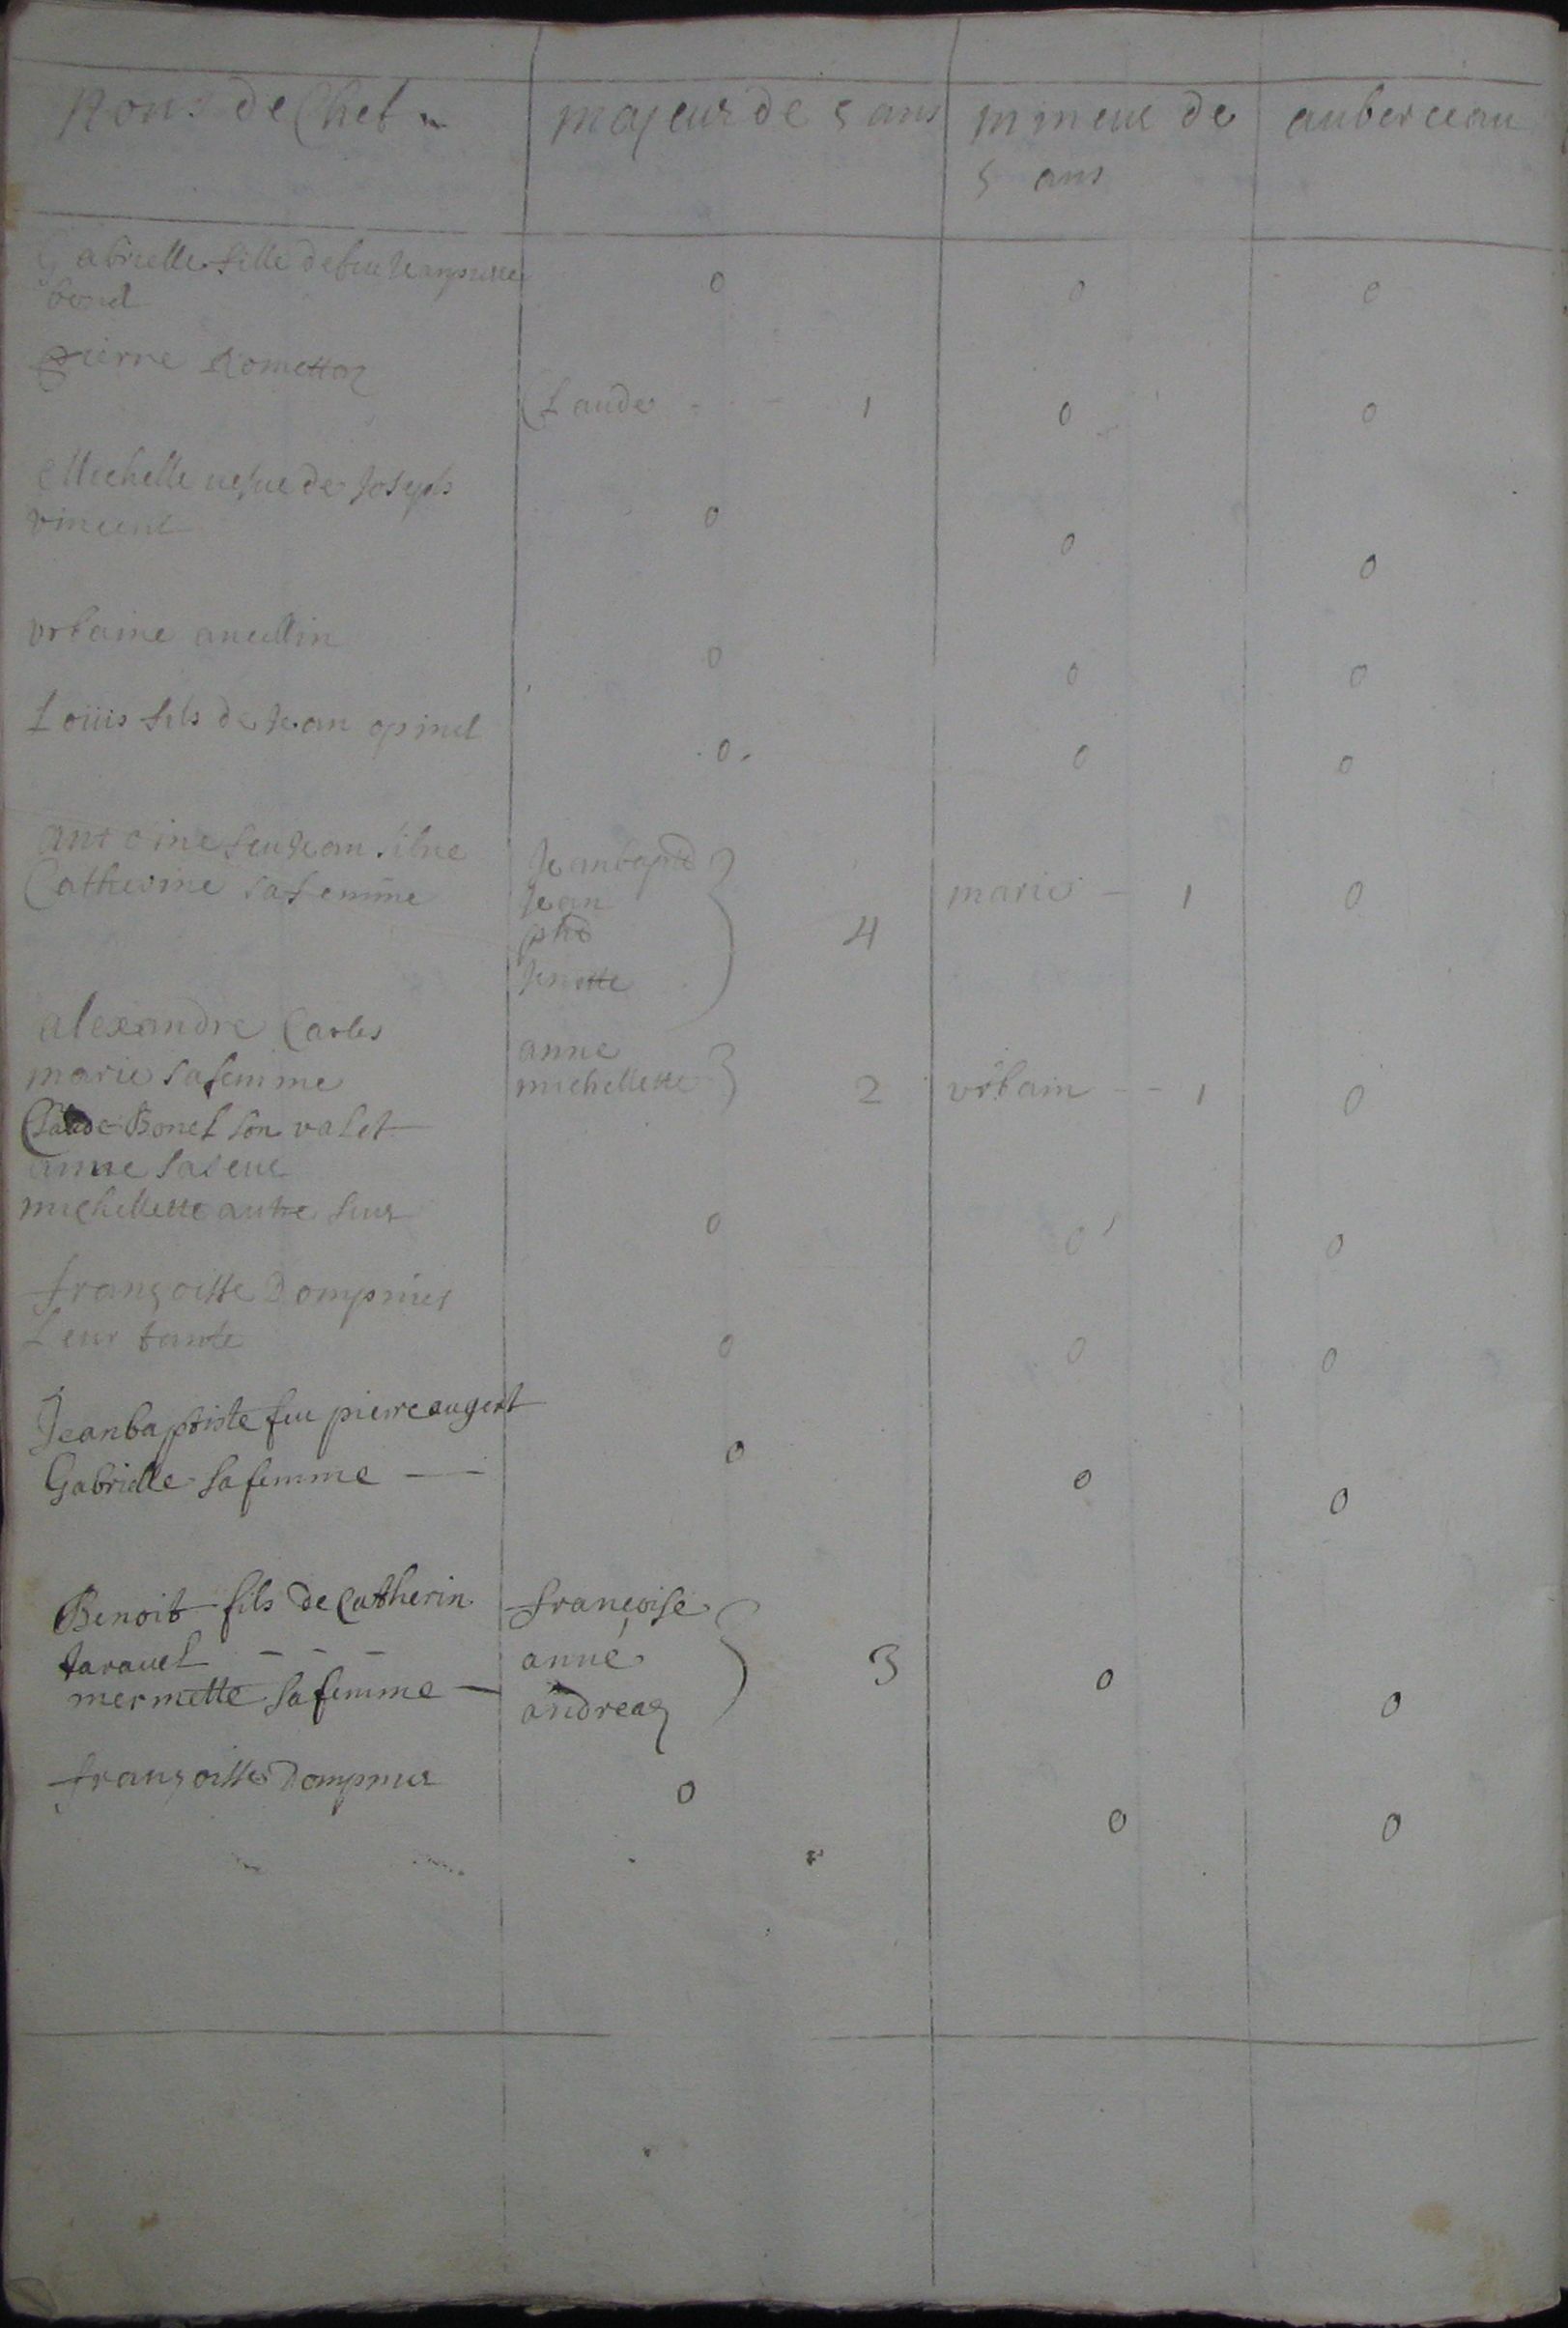 Noms de Chef majeur de 5 ans mineur de auberceau
5 ans
Gabrielle fille de feu Jean
0 0 0
bonel
pierre Romettaz
Claude - - 1 0 0
Michelle uefue de Joseph
vincent 0 0 0
vrbaine ancellin 0 0 0
Loüis fils de Jean opinel 0 0 0
antoine feu Jean silue Jeanbaptê
Catherine sa femme Jean 4 marie - 1 0
Jenotte
alexandre Carles anne
marie sa femme michellette 2 vrbain - - 1 0
Claude Bonel son valet
anne sa seur
michellette autre seur 0 0 0
françoisse Dompnier
Leur tante 0 0 0
Jeanbaptiste feu pierre augert
0
Gabrielle sa femme - - 0 0
Benoit fils de Catherin françoise
tarauel - - - anne 3 0 0
mermette sa femme - andreaz
françoisse Dompnier 0 0 0